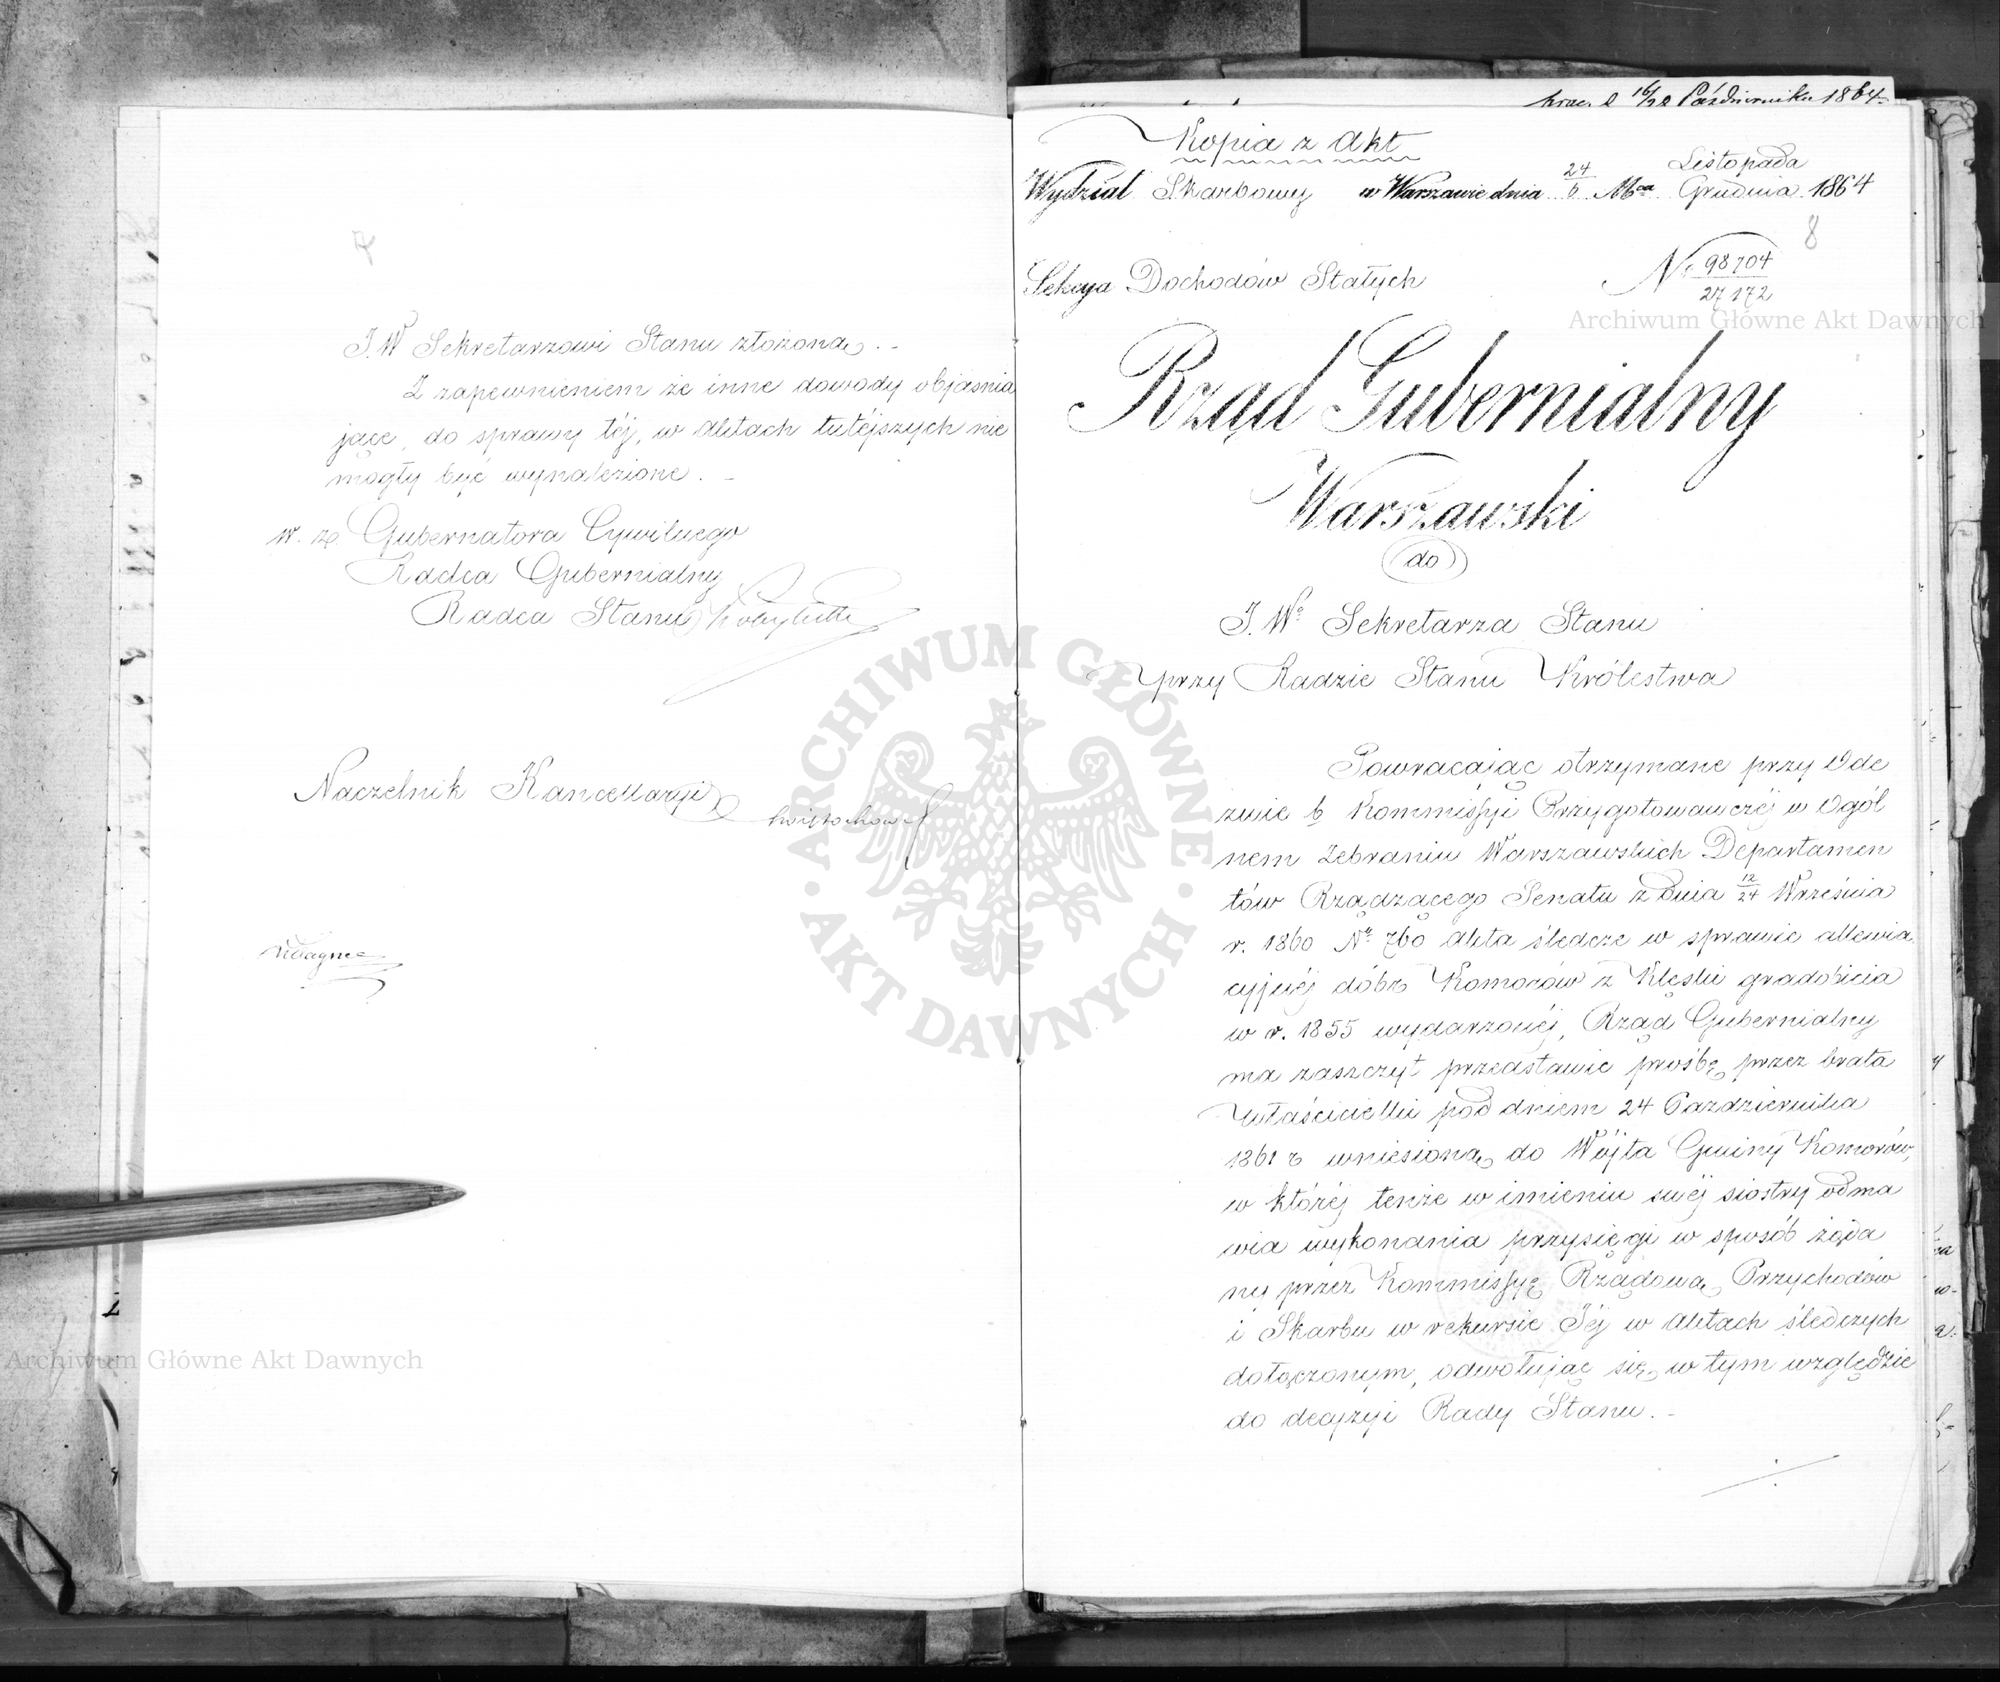 J.W Sekretarzowi Stanu złożoną. –
Z zapewnieniem że inne dowody objaśnia
jące, do sprawy téj, w Aktach tutéjszych nie
mogły być wynalezione. –
w. z. Gubernatora Cywilnego
Radca Gubernialny
Radca Stanu
Naczelnik Kancellaryi
Wagner
16/28 Października 1864
Kopia z Akt
Wydział Skarbowy w Warszawie dnia 24/6 Mca Listopada/Grudnia 1864
8
Sekcya Dochodów Stałych
Nr 98704/27172
Archiwum Główne Akt Dawnych
Rząd Gubernialny
Warszawski
do
J. Wo Sekretarza Stanu
przy Radzie Stanu Królestwa
Powracając otrzymane przy Ode
zwie b. Kommissyi Przygotowawczéj w Ogól
nem Zebraniu Warszawskich Departamen
tów Rządzącego Senatu z dnia 12/24 Września
r. 1860 Nr 760 Akta śledcze w sprawie allewia
cyjnéj dóbr Komorów z Klęski gradobicia
w r. 1855 wydarzonéj, Rząd Gubernialny
ma zaszczyt przedstawić prośbę przez brata
właścicielki pod dniem 24 Pazdziernika
1861 r wniesioną do Wójta Gminy Komorów,
w któréj tenże w imieniu swéj siostry odma
wia wykonania przysięgi w sposób żąda
ny przez Kommissyę Rządową Przychodów
i Skarbu w rekursie Jéj w Aktach śledczych
dołączonym, odwołując się w tym względzie
do decyzyi Rady Stanu. –
ARCHIWUM GŁÓWNE
AKT DAWNYCH
Archiwum Główne Akt Dawnych